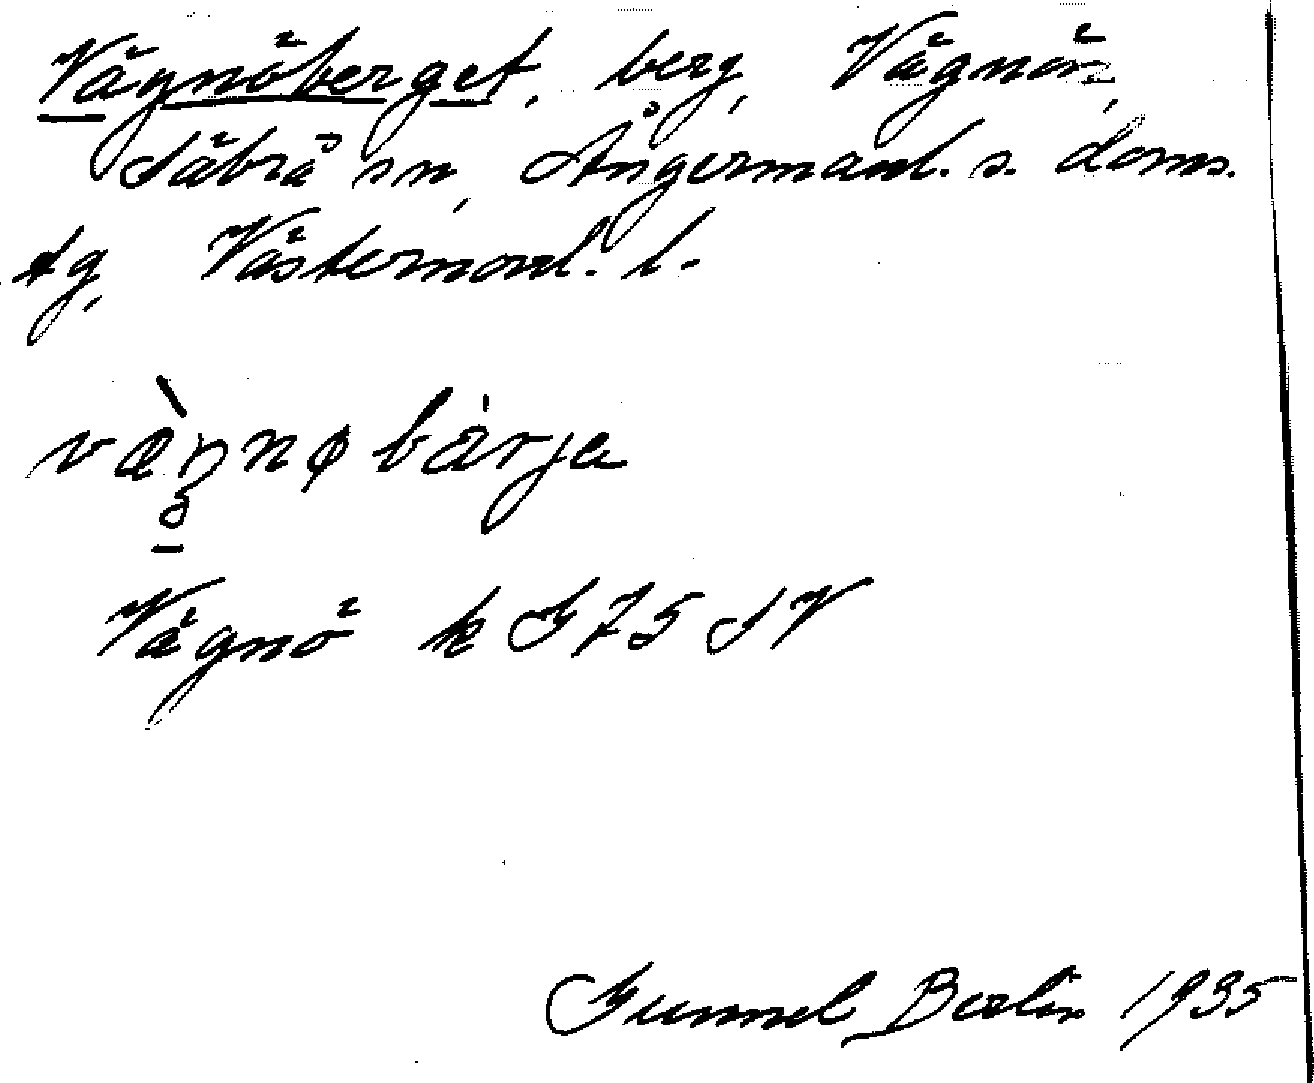 Vägnöberget, berg, Vägnön,
Säbrå sn, Ångermanl. s. doms.
tg, Västernorrl. l.
væ̀ŋnøbárja
Vägnö k G75 SV
Gunnel Berlin 1935